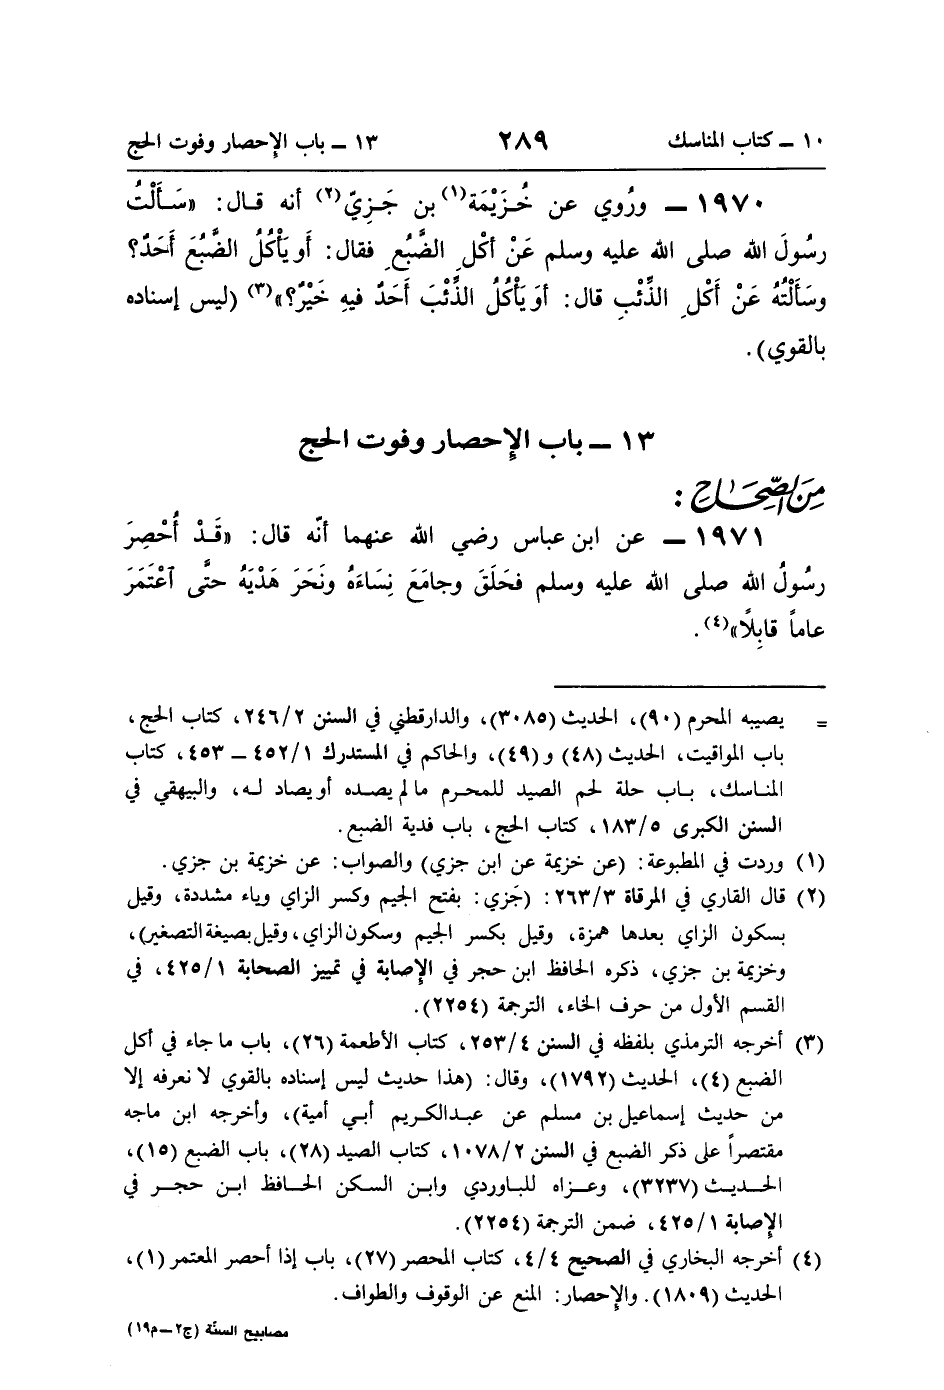 ١٠ ــ كتاب المناسك ٢٨٩ ١٣ ــ باب الإحصار وفوت الحج
١٩٧٠ ــ ورُوي عن خُـزَيْمَة(١) بن جَـزِيّ(٢) أنه قـال: «سَـأَلْتُ
رسُولَ الله صلى الله عليه وسلم عَنْ أكْلِ الضَّبُعِ فقال: أَو يَأْكُلُ الضَّبُعَ أَحَدٌ؟
وسَأَلْتُهُ عَنْ أَكْلِ الذِّئْبِ قال: أوَ يَأْكُلُ الذِّئْبَ أَحَدٌ فيهِ خَيْرٌ؟»(٣) (ليس إسناده
بالقوي).
١٣ ــ باب الإحصار وفوت الحج
مِنَ الصِّحَاحِ:
١٩٧١ ــ عن ابن عباس رضي الله عنهما أنّه قال: «قَـدْ أُحْصِرَ
رسُولُ الله صلى الله عليه وسلم فحَلَقَ وجامَعَ نِسَاءَهُ ونَحَرَ هَدْيَهُ حتَّى ٱعْتَمَرَ
عاماً قابِلًا»(٤).
= يصيبه المحرم (٩٠)، الحديث (٣٠٨٥)، والدارقطني في السنن ٢٤٦/٢، كتاب الحج،
باب المواقيت، الحديث (٤٨) و (٤٩)، والحاكم في المستدرك ٤٥٢/١ ــ ٤٥٣، كتاب
المناسك، باب حلة لحم الصيد للمحرم ما لم يصده أو يصاد له، والبيهقي في
السنن الكبرى ١٨٣/٥، كتاب الحج، باب فدية الضبع.
(١) وردت في المطبوعة: (عن خزيمة عن ابن جزي) والصواب: عن خزيمة بن جزي.
(٢) قال القاري في المرقاة ٢٦٣/٣: (جَزي: بفتح الجيم وكسر الزاي وياء مشددة، وقيل
بسكون الزاي بعدها همزة، وقيل بكسر الجيم وسكون الزاي، وقيل بصيغة التصغير)،
وخزيمة بن جزي، ذكره الحافظ ابن حجر في الإصابة في تمييز الصحابة ٤٢٥/١، في
القسم الأول من حرف الخاء، الترجمة (٢٢٥٤).
(٣) أخرجه الترمذي بلفظه في السنن ٢٥٣/٤، كتاب الأطعمة (٢٦)، باب ما جاء في أكل
الضبع (٤)، الحديث (١٧٩٢)، وقال: (هذا حديث ليس إسناده بالقوي لا نعرفه إلا
من حديث إسماعيل بن مسلم عن عبدالكريم أبي أمية)، وأخرجه ابن ماجه
مقتصراً على ذكر الضبع في السنن ١٠٧٨/٢، كتاب الصيد (٢٨)، باب الضبع (١٥)،
الحديث (٣٢٣٧)، وعزاه للباوردي وابن السكن الحافظ ابن حجر في
الإصابة ٤٢٥/١، ضمن الترجمة (٢٢٥٤).
(٤) أخرجه البخاري في الصحيح ٤/٤، كتاب المحصر (٢٧)، باب إذا أحصر المعتمر (١)،
الحديث (١٨٠٩). والإحصار: المنع عن الوقوف والطواف.
مصابيح السنّة (ج٢ــ م١٩)